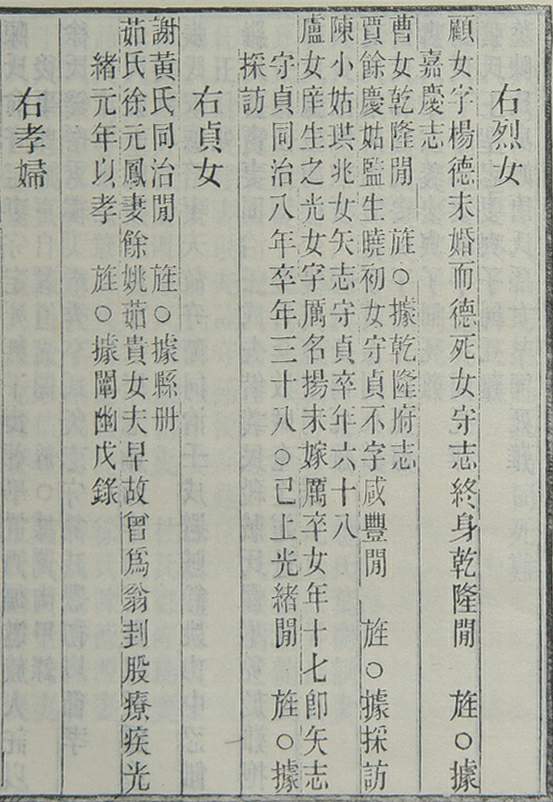 右烈女
顧女字楊德未婚而德死女守志終身乾隆閒 旌○據
嘉慶志
曹女乾隆閒 旌○據乾隆府志
賈餘慶姑監生曉初女守貞不字咸豐閒 旌○據採訪
陳小姑珙兆女矢志守貞卒年六十八
盧女庠生之光女字厲名揚未嫁厲卒女年十七卽矢志
守貞同治八年卒年三十八○已上光緒閒 旌○據
採訪
右貞女
謝黃氏同治閒 旌○據縣册
茹氏徐元鳳妻餘姚茹貴女夫早故曾爲翁刲股療疾光
緒元年以孝 旌○據闡幽戊錄
右孝婦